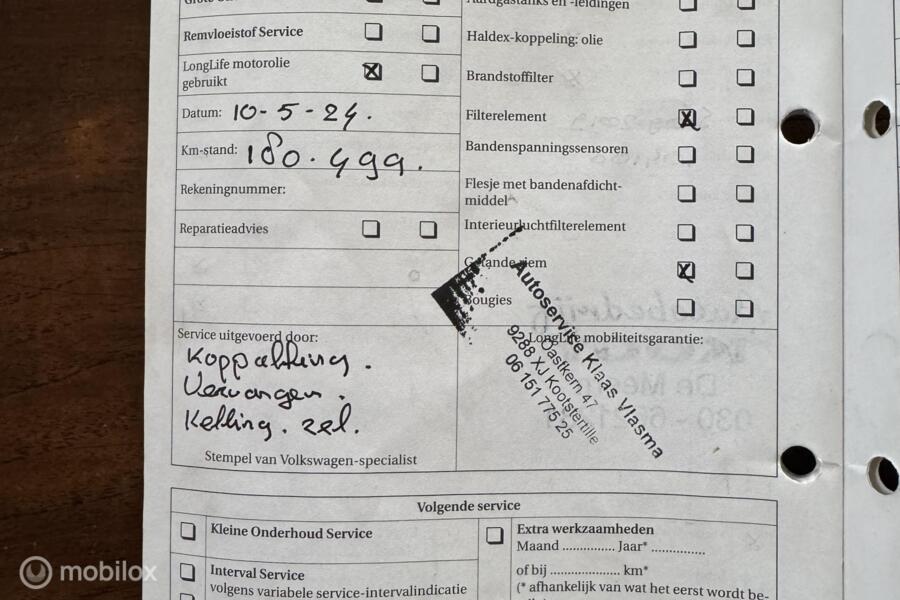 Remvloeistof Service
LongLife motorolie
gebruikt
Datum: 10-5-24.
Km-stand: 180.499.
Rekeningnummer:
Reparatieadvies
Service uitgevoerd door:
Koppakking.
Vervangen.
Ketting. zel.
Stempel van Volkswagen-specialist
Aardgastanks en -leidingen
Haldex-koppeling: olie
Brandstoffilter
Filterelement
Bandenspanningssensoren
Flesje met bandenafdicht-
middel
Interieurluchtfilterelement
Getande riem
Bougies
LongLife mobiliteitsgarantie:
Autoservice Klaas Vlasma
Oastkern 47
9288 XJ Kootstertille
06 151 775 25
Volgende service
Kleine Onderhoud Service
Interval Service
volgens variabele service-intervalindicatie
Extra werkzaamheden
Maand ............... Jaar* ...............
of bij .................... km*
(* afhankelijk van wat het eerst wordt be-
mobilox